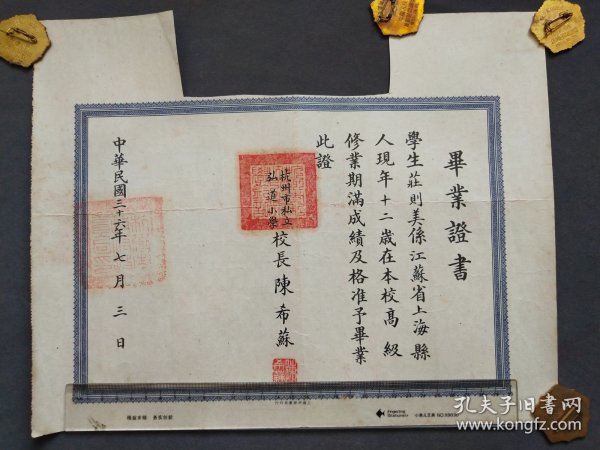 畢業證書
學生莊則美係江蘇省上海縣
人現年十二歲在本校高級
修業期滿成績及格准予畢業
此證
杭州市私立
弘道小學
校長陳希蘇
中華民國三十六年七月三日
孔夫子旧书网
www.kongfz.com